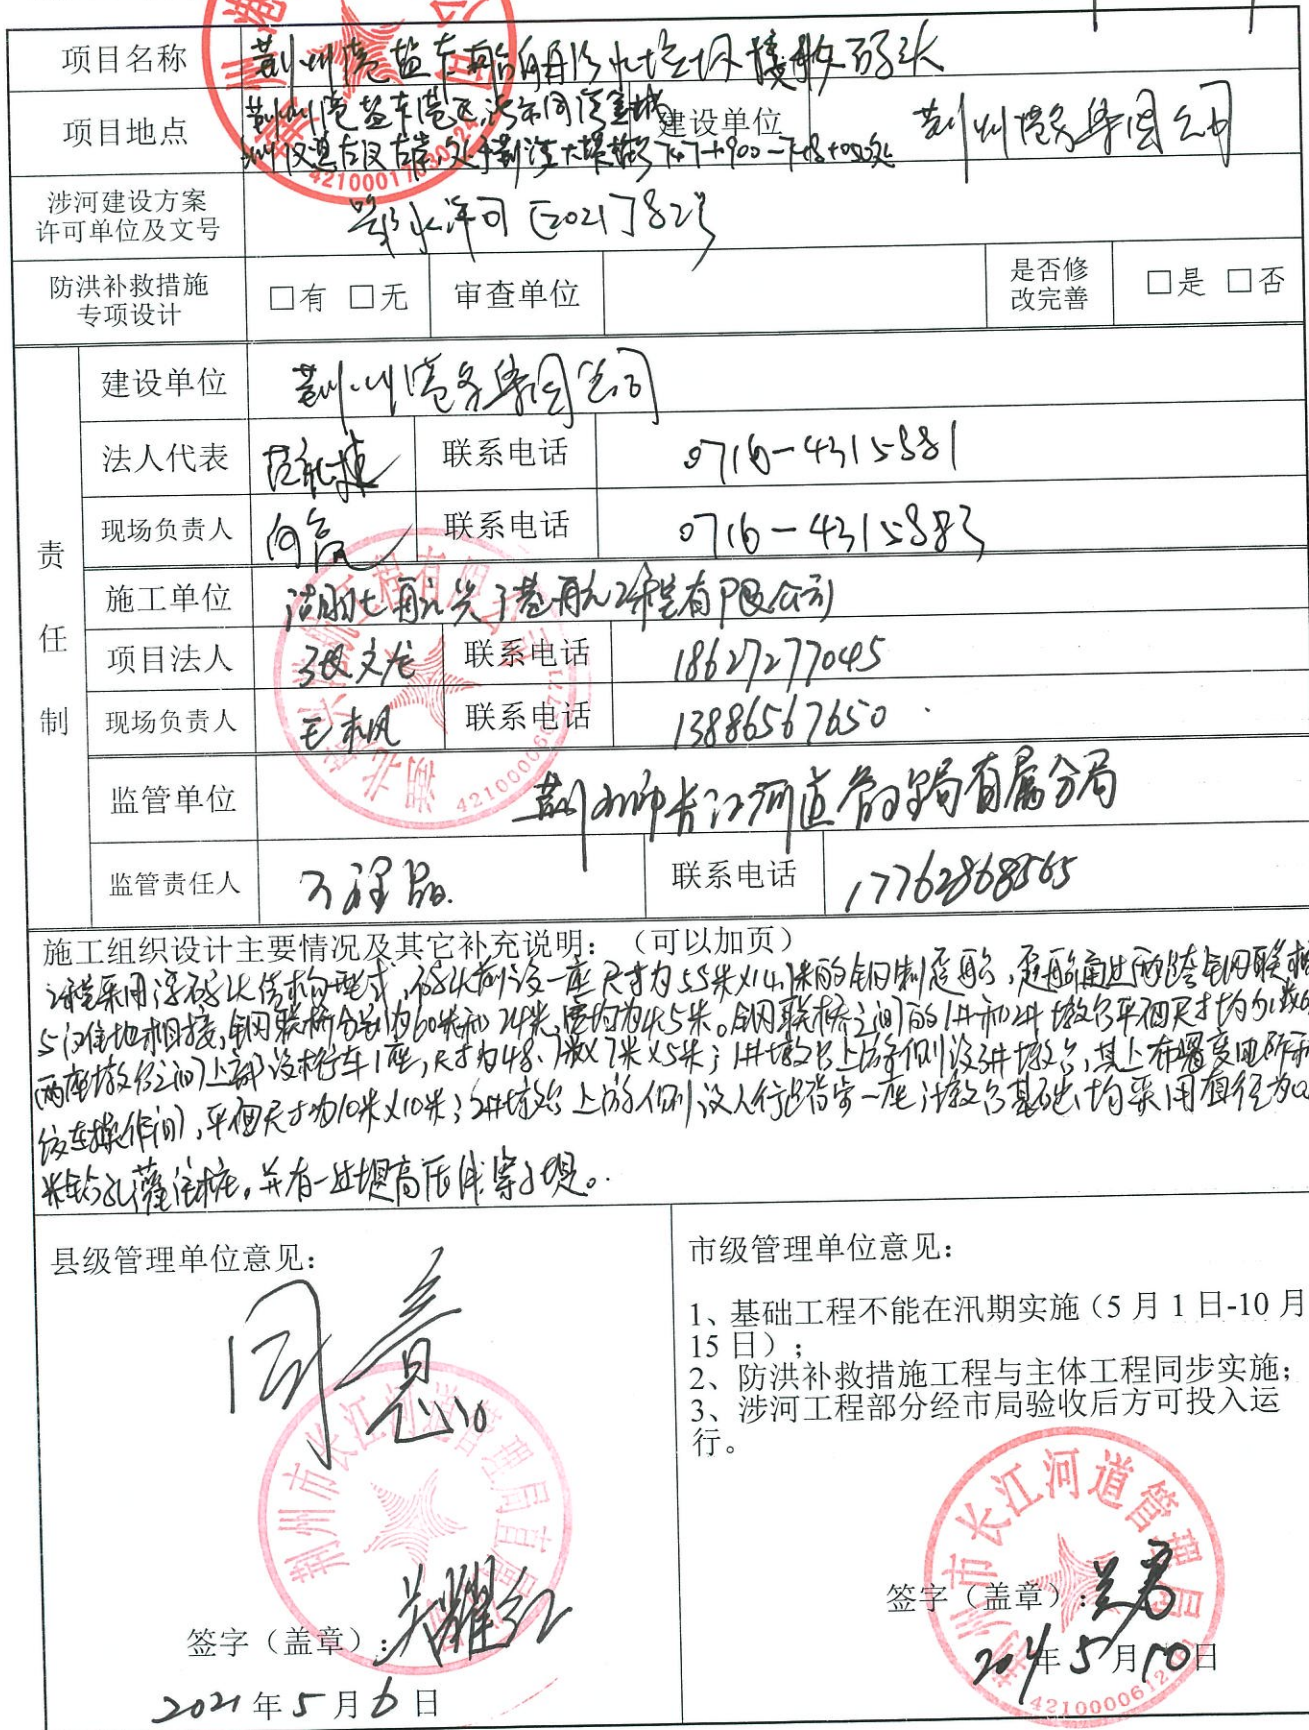 项目名称 荆州港盐卡 码头
项目地点 荆州港盐卡港区 建设单位 荆州港务集团公司
荆江大堤桩号747+900—748+050处
涉河建设方案
许可单位及文号 鄂水许可[2021]82号
防洪补救措施
专项设计 □有 □无 审查单位 是否修
改完善 □是 □否
责任制
建设单位 荆州港务集团公司
法人代表 联系电话 0716-4315881
现场负责人 向 联系电话 0716-4315883
施工单位 湖北 港航工程有限公司
项目法人 张文龙 联系电话 18627277045
现场负责人 联系电话 13886567650
监管单位 荆州市长江河道管理局直属分局
监管责任人 万程晶 联系电话 17762868565
施工组织设计主要情况及其它补充说明：（可以加页）
工程采用浮码头结构型式，码头前沿设一座尺寸为55米×14米的钢制趸船，趸船通过两跨钢联桥
与后住地相接，钢联桥分别为60米和24米，宽均为4.5米。钢联桥之间的1#和2#墩台平面尺寸均为
两座墩台之间上部设桥车1座，尺寸为48.7米×7米×5米；1#墩台上游侧设3#墩台，其上布置变电所和
绞车操作间，平面尺寸为10米×10米；2#墩台上游侧设人行 一座；墩台基础均采用直径为
米钻孔灌注桩。并有一处堤高压线穿堤。
县级管理单位意见：
同意
荆州市长江河道管理局直属分局
签字（盖章）：吴耀红
2021年5月6日
市级管理单位意见：
1、基础工程不能在汛期实施（5月1日-10月
15日）；
2、防洪补救措施工程与主体工程同步实施；
3、涉河工程部分经市局验收后方可投入运
行。
荆州市长江河道管理局
签字（盖章）：
年5月10日